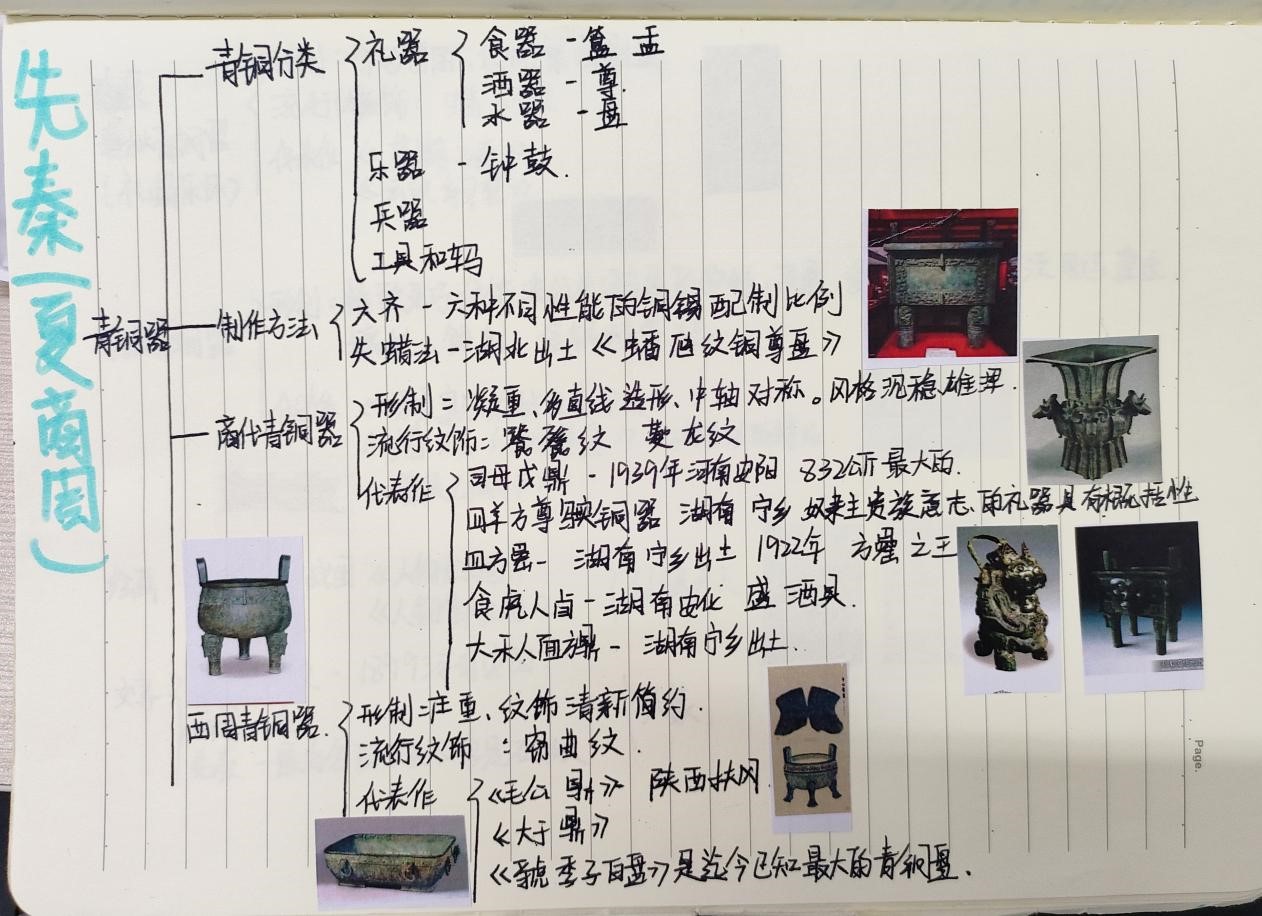 先秦(夏商周)
青铜器
青铜分类
礼器
食器 - 簋 盂
酒器 - 尊
水器 - 盘
乐器 - 钟鼓.
兵器
工具和车马
制作方法
六齐 - 六种不同性能的铜锡配制比例
失蜡法 - 湖北出土《蟠虺纹铜尊盘》
商代青铜器
形制:凝重、多直线造形、中轴对称。风格沉稳雄浑.
流行纹饰:饕餮纹 夔龙纹
代表作
司母戊鼎 - 1939年河南安阳 832公斤最大的.
四羊方尊 铜器 湖南 宁乡 奴隶主贵族意志、的礼器具有概括性
皿方罍 - 湖南宁乡出土 1922年 方罍之王
食虎人卣 - 湖南安化 盛酒具.
大禾人面方鼎 - 湖南宁乡出土.
西周青铜器.
形制:庄重、纹饰清新简约.
流行纹饰:窃曲纹.
代表作
《毛公鼎》 陕西扶风
《大于鼎》
《虢季子白盘》是迄今已知最大的青铜盘.
Page.